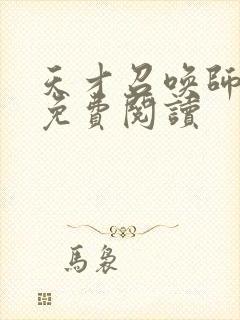 天才召喚師
免費閱讀
馬裊